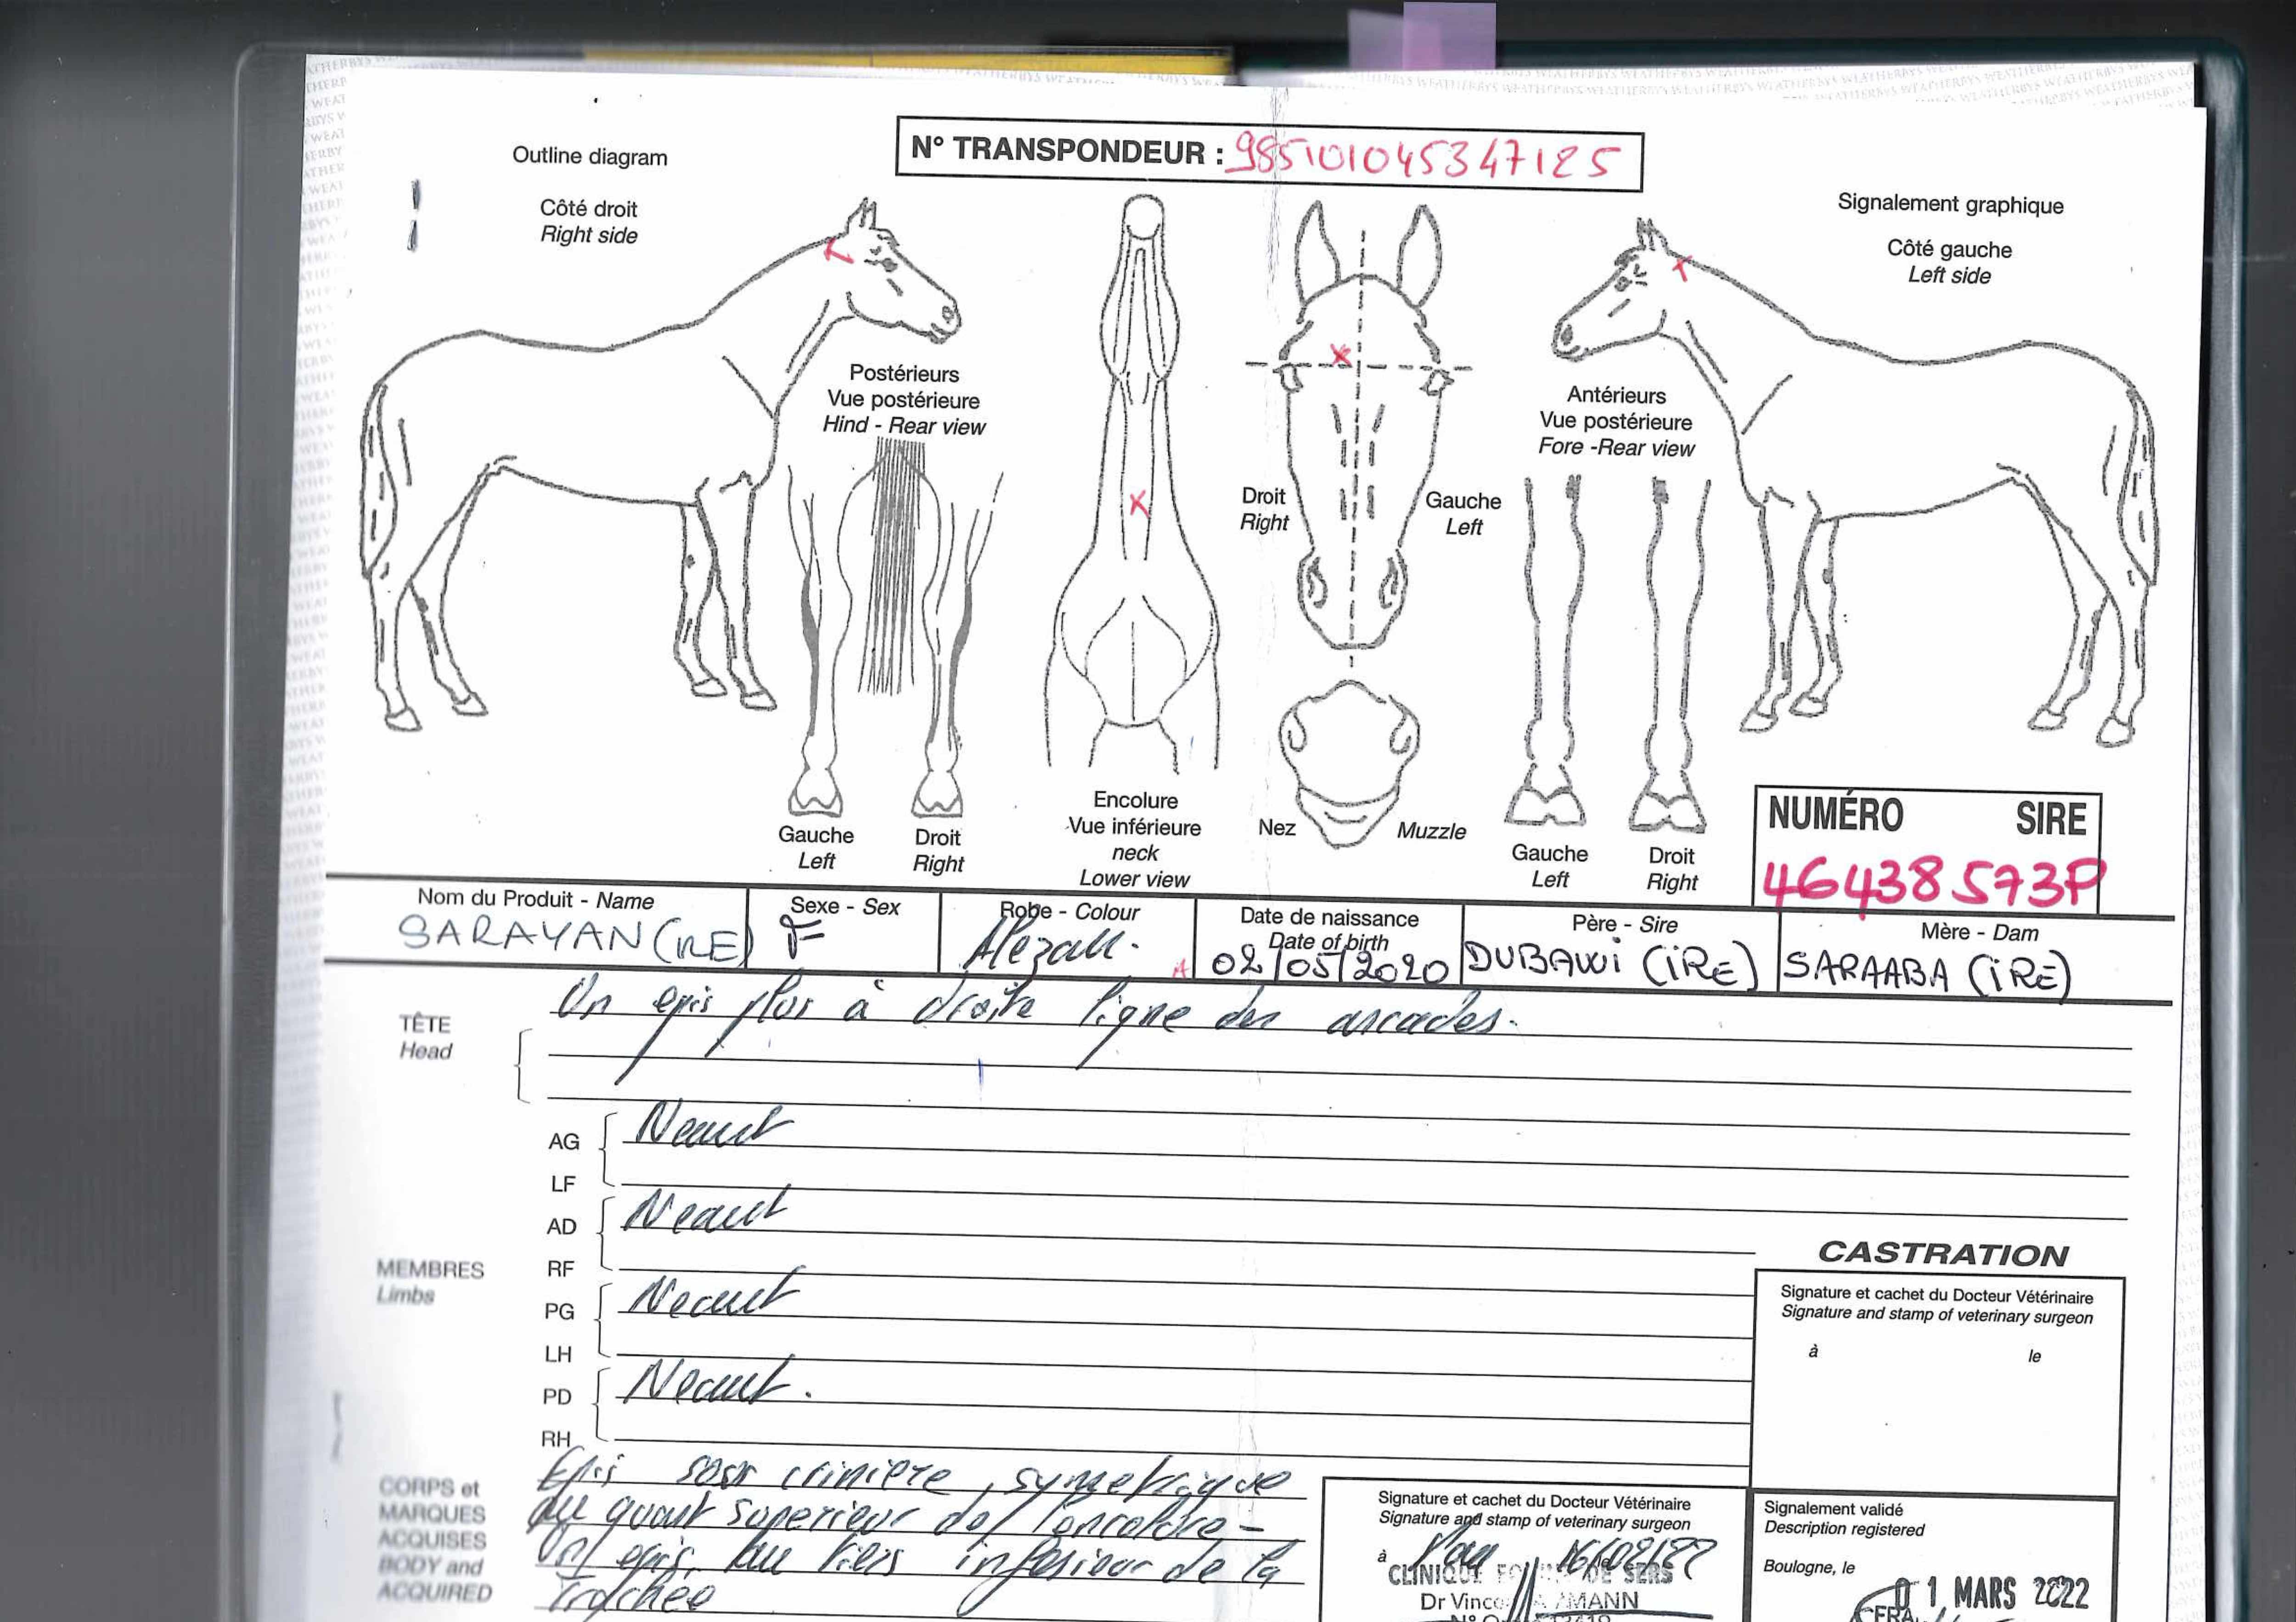 N° TRANSPONDEUR : 985101045347125
Outline diagram
Côté droit
Right side
Signalement graphique
Côté gauche
Left side
Postérieurs
Vue postérieure
Hind - Rear view
Antérieurs
Vue postérieure
Fore -Rear view
Droit
Right
Gauche
Left
Gauche
Left
Droit
Right
Encolure
Vue inférieure
neck
Lower view
Nez
Muzzle
Gauche
Left
Droit
Right
NUMÉRO SIRE
46438573P
Nom du Produit - Name
SARAYAN (IRE)
Sexe - Sex
F
Robe - Colour
Alezan.
Date de naissance
Date of birth
02/05/2020
Père - Sire
DUBAWi (iRE)
Mère - Dam
SARAABA (iRE)
TÊTE
Head
Un epis plus à droite ligne des arcades.
MEMBRES
Limbs
AG
LF
Neant
AD
RF
Neant
PG
LH
Neant
PD
RH
Neant.
CASTRATION
Signature et cachet du Docteur Vétérinaire
Signature and stamp of veterinary surgeon
à le
CORPS et
MARQUES
ACQUISES
BODY and
ACQUIRED
Epis sous criniere, symetrique
au quart superieur de l'encolure-
Un epis au tiers inferieur de la
Trachée
Signature et cachet du Docteur Vétérinaire
Signature and stamp of veterinary surgeon
à Pau 16/02/22
CLINIQUE DE SERS
Dr
Signalement validé
Description registered
Boulogne, le
0 1 MARS 2022